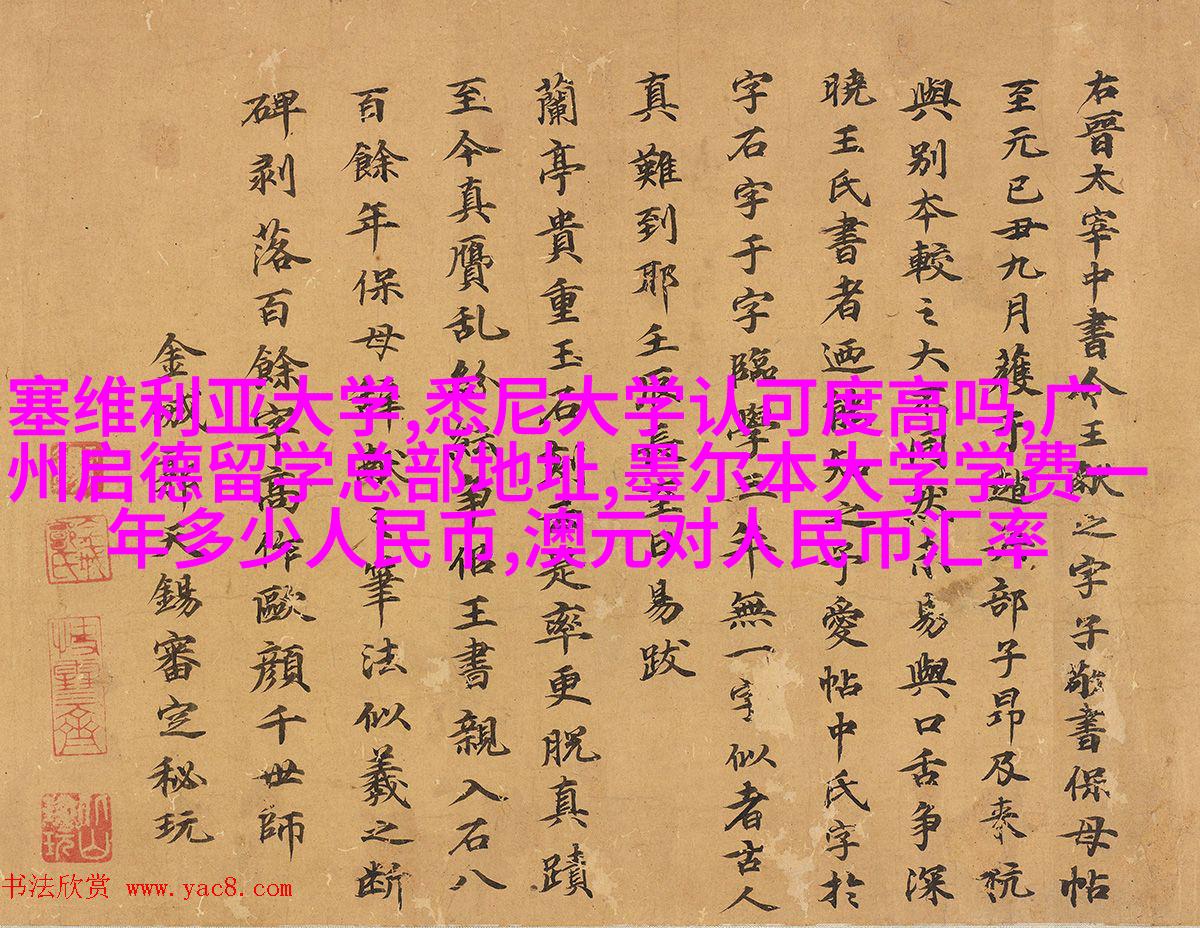 右晉太宰中書令王獻之字子敬書保母帖
至元己丑九月獲于趙兵部子昂及来杭
與别本較之大
與口舌争深
曉王氏書者迺能知之予愛帖中氏字於
字石字于字臨學三年無一字似者古人
真難到耶壬辰長至日易跋
蘭亭貴重玉石刻
率更脱真蹟
至今真贋乱
王書親入石八
百餘年保母
筆法似羲之断
碑剥落百餘字高作歐顔千世師
金城郭天錫審定秘玩
塞维利亚大学,悉尼大学认可度高吗,广
州启德留学总部地址,墨尔本大学学费一
年多少人民币,澳元对人民币汇率
书法欣赏 www.yac8.com